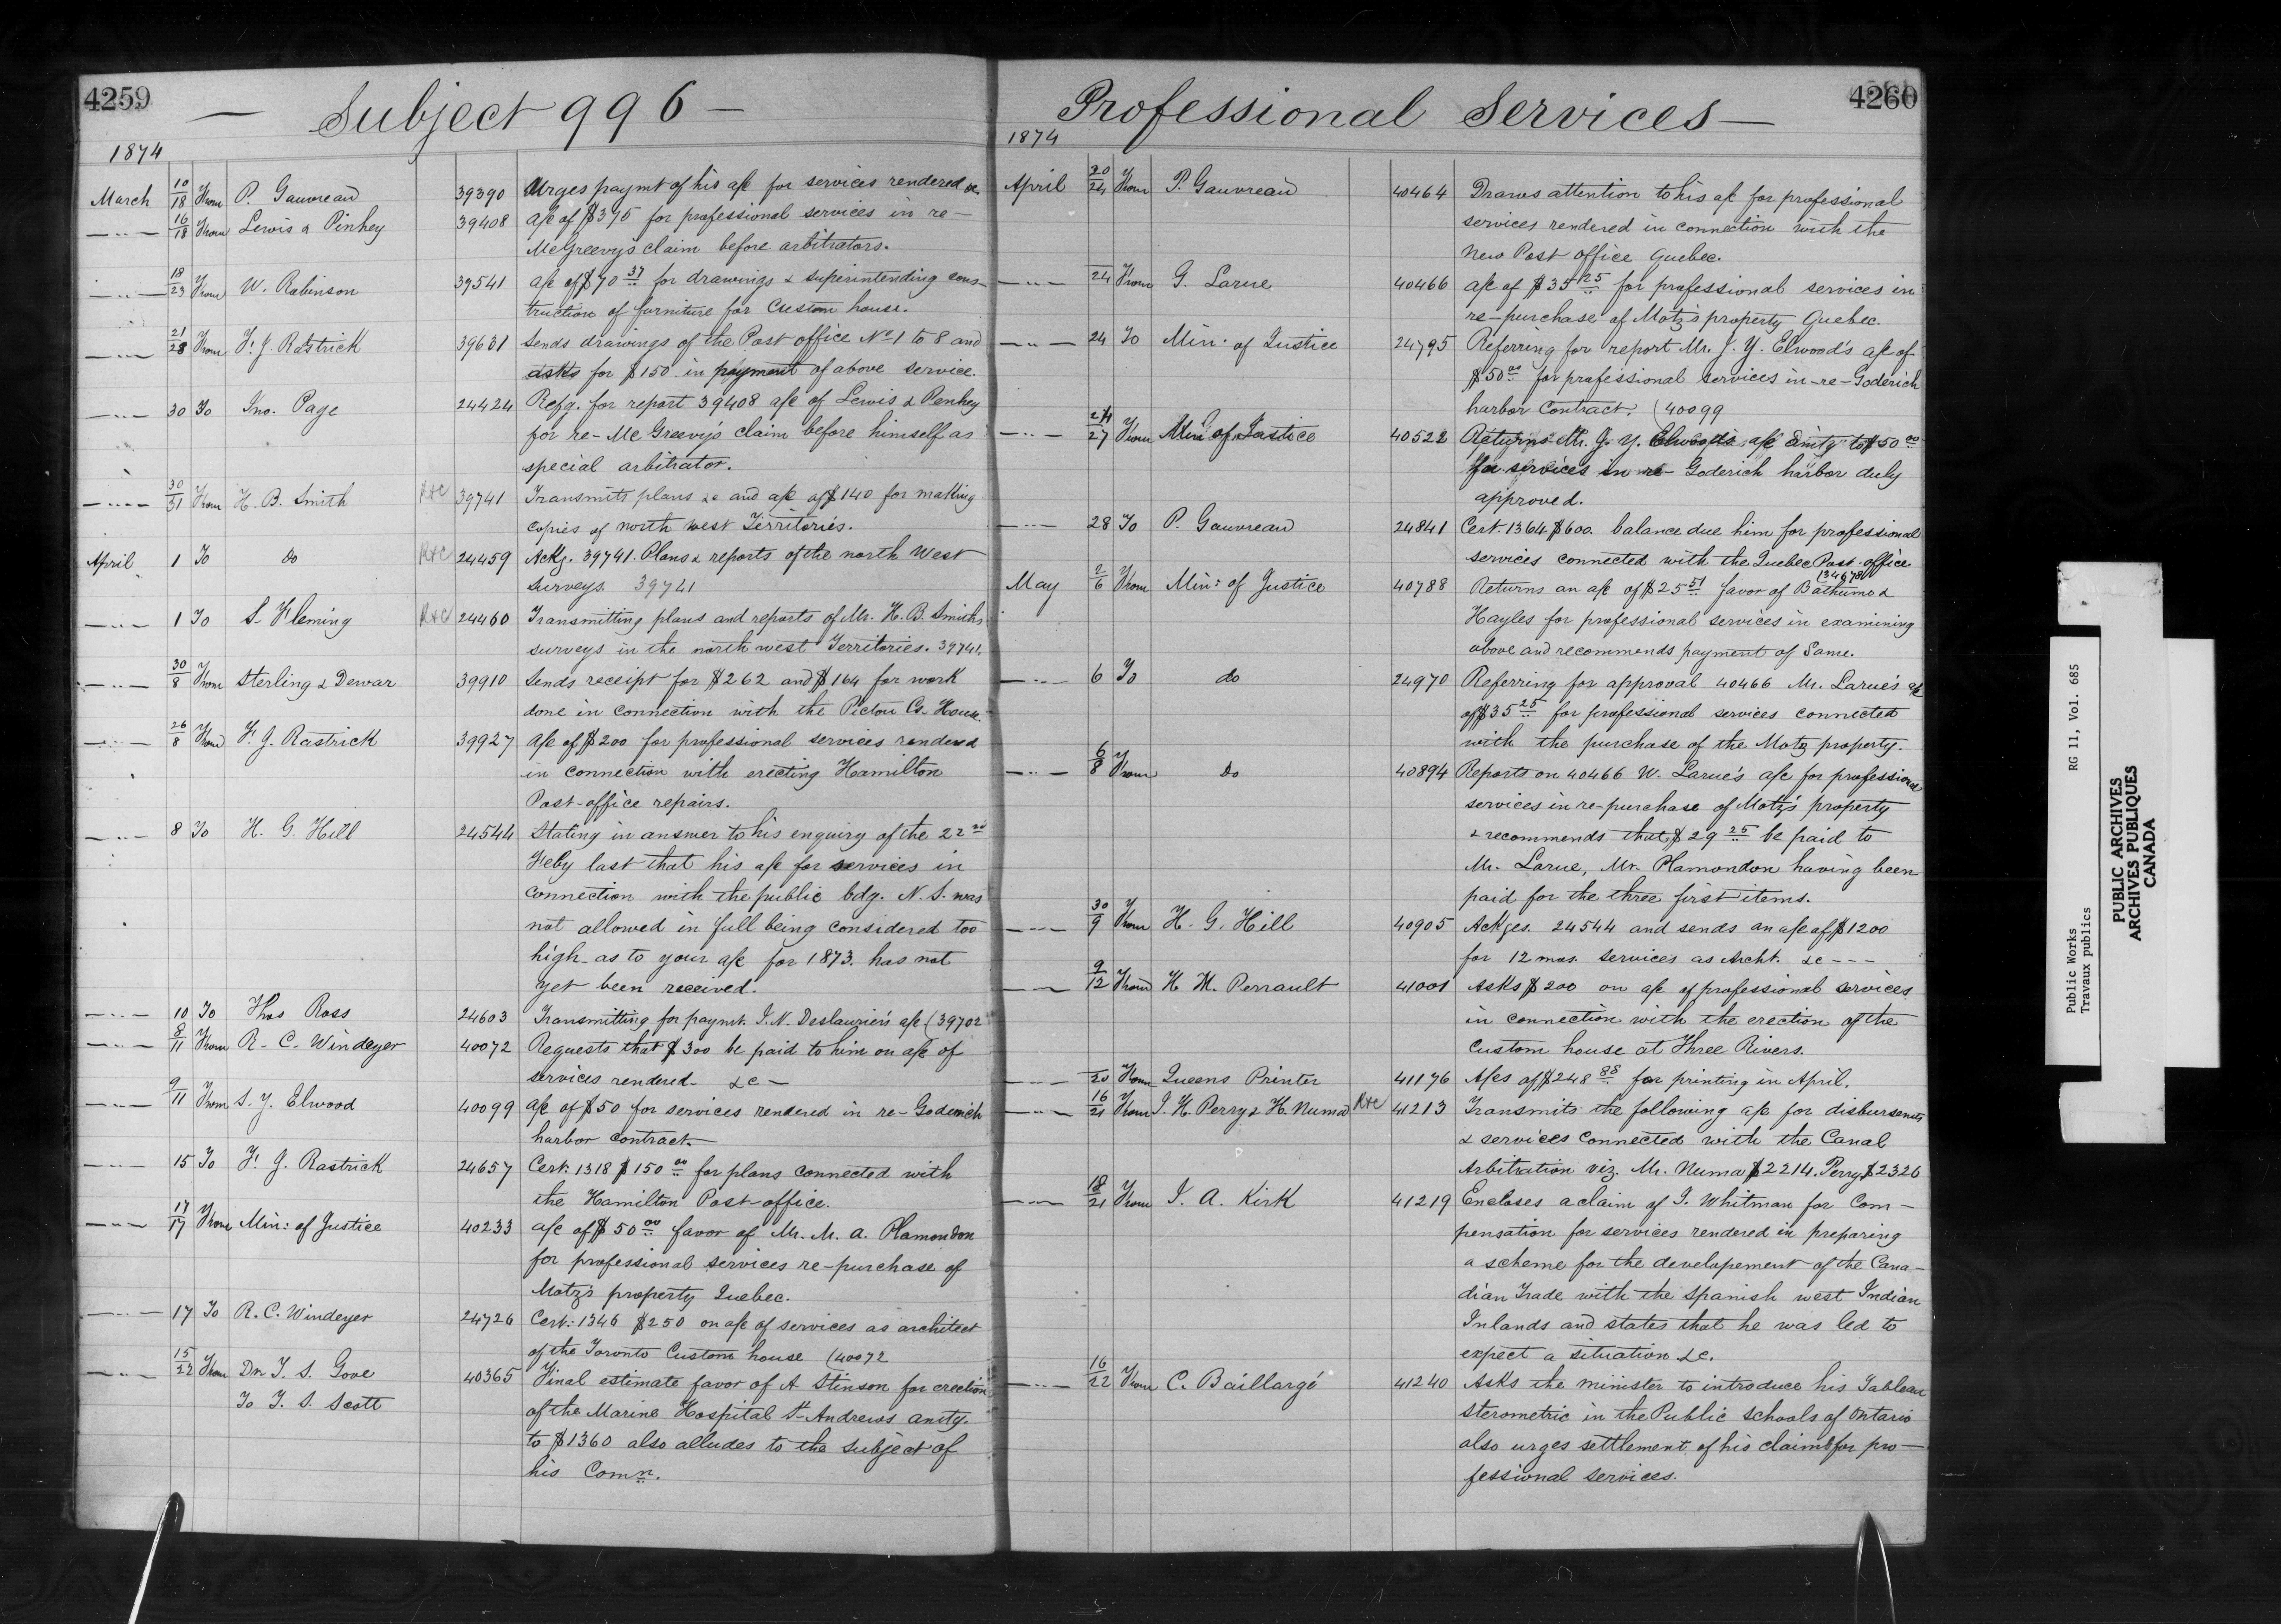 4259
— Subject 996 —
1874
March 10/18 From P. Gauvreau 39390 Urges paymt of his a/c for services rendered &c.
—"— 16/18 From Lewis & Pinhey 39408 a/c of $395 for professional services in re-
McGreevy's claim before arbitrators.
—"— 18/23 From W. Robinson 39541 a/c of $70 37 for drawings & superintending cons-
truction of furniture for Custom house.
—"— 21/28 From F. J. Rastrick 39631 Sends drawings of the Post office No 1 to 8 and
asks for $150. in payment of above service.
—"— 30 To Jno. Page 24424 Refg. for report 39408 a/c of Lewis & Penhey
for re-McGreevy's claim before himself as
special arbitrator.
—"— 30/31 From H. B. Smith R&C 39741 Transmits plans &c and a/c of $140 for making
copies of north west Territories.
April 1 To do R&C 24459 Ackg. 39741. Plans & reports of the north West
surveys. 39741
—"— 1 To S. Fleming R&C 24460 Transmitting plans and reports of Mr. H. B. Smith's
surveys in the north west Territories. 39741.
—"— 30/8 From Sterling & Dewar 39910 Sends receipt for $262 and $164 for work
done in connection with the Pictou Cs. House.
—"— 26/8 From F. J. Rastrick 39927 a/c of $200 for professional services rendered
in connection with erecting Hamilton
Post-office repairs.
—"— 8 To H. G. Hill 24544 Stating in answer to his enquiry of the 22nd
Feby last that his a/c for services in
connection with the public bdg. N. S. was
not allowed in full being considered too
high as to your a/c for 1873. has not
yet been received.
—"— 10 To Thos Ross 24603 Transmitting for paymt. J. N. Deslaurier's a/c (39702
—"— 8/11 From R. C. Windeyer 40072 Requests that $300 be paid to him on a/c of
services rendered &c —
—"— 9/11 From S. Y. Elwood 40099 a/c of $50 for services rendered in re-Goderich
harbor contract.
—"— 15 To F. J. Rastrick 24657 Cert: 1318 $150 00 for plans connected with
the Hamilton Post-office.
—"— 17/17 From Min: of Justice 40233 a/c of $50 00 favor of Mr. M. A. Plamondon
for professional services re-purchase of
Motz's property Quebec.
—"— 17 To R. C. Windeyer 24726 Cert: 1346 $250 on a/c of services as architect
of the Toronto Custom house (40072
—"— 15/22 From Dr. T. S. Gove 40365 Final estimate favor of A Stinson for erection
To T. S. Scott of the Marine Hospital St Andrews amtg.
to $1360 also alludes to the subject of
his Comn.
Professional Services —
4260
1874
April 20/24 From P. Gauvreau 40464 Draws attention to his a/c for professional
services rendered in connection with the
New Post office Quebec.
—"— 24 From G. Larue 40466 a/c of $35 25 for professional services in
re-purchase of Motz's property Quebec.
—"— 24 To Min. of Justice 24795 Referring for report Mr. J. Y. Elwood's a/c of
$50 00 for professional services in-re-Goderich
harbor Contract. (40099
—"— 24/27 From Min: of Justice 40522 Returns Mr. J. Y. Elwood's a/c amtg to $50 00
for services in re- Goderich harbor duly
approved.
—"— 28 To P. Gauvreau 24841 Cert. 1364 $600. balance due him for professional
services connected with the Quebec Post-office
May 2/6 From Min: of Justice 40788 Returns an a/c of $25 51 favor of Bathurno &
Hayles for professional services in examining
above and recommends payment of Same.
—"— 6 To do 24970 Referring for approval 40466 Mr. Larue's a/c
of $35 25 for professional services connected
with the purchase of the Motz property.
—"— 6/8 From do 40894 Reports on 40466 W. Larue's a/c for professional
services in re-purchase of Motz's property
& recommends that $29 25 be paid to
Mr. Larue, Mr. Plamondon having been
paid for the three first items.
—"— 30/9 From H. G. Hill 40905 Ackges. 24544 and sends an a/c of $1200
for 12 mos. services as Archt. &c - - -
—"— 9/12 From H. M. Perrault 41001 Asks $200 on a/c of professional services
in connection with the erection of the
Custom house at Three Rivers.
—"— 20 From Queens Printer 41176 A/cs of $248 88 for printing in April.
—"— 16/21 From J. H. Perry & H. Numa R&C 41213 Transmits the following a/c for disbursemts
& services connected with the Canal
Arbitration viz. Mr. Numa $2214. Perry $2326
—"— 18/21 From J. A. Kirk 41219 Encloses a claim of J. Whitman for Com-
pensation for services rendered in preparing
a scheme for the developement of the Cana-
dian Trade with the Spanish west Indian
Inlands and states that he was led to
expect a situation &c.
—"— 16/22 From C. Baillargé 41240 Asks the minister to introduce his Tableau
sterometric in the Public schools of Ontario
also urges settlement of his claims for pro-
fessional services.
Public Works RG 11, Vol. 685
Travaux publics
PUBLIC ARCHIVES
ARCHIVES PUBLIQUES
CANADA